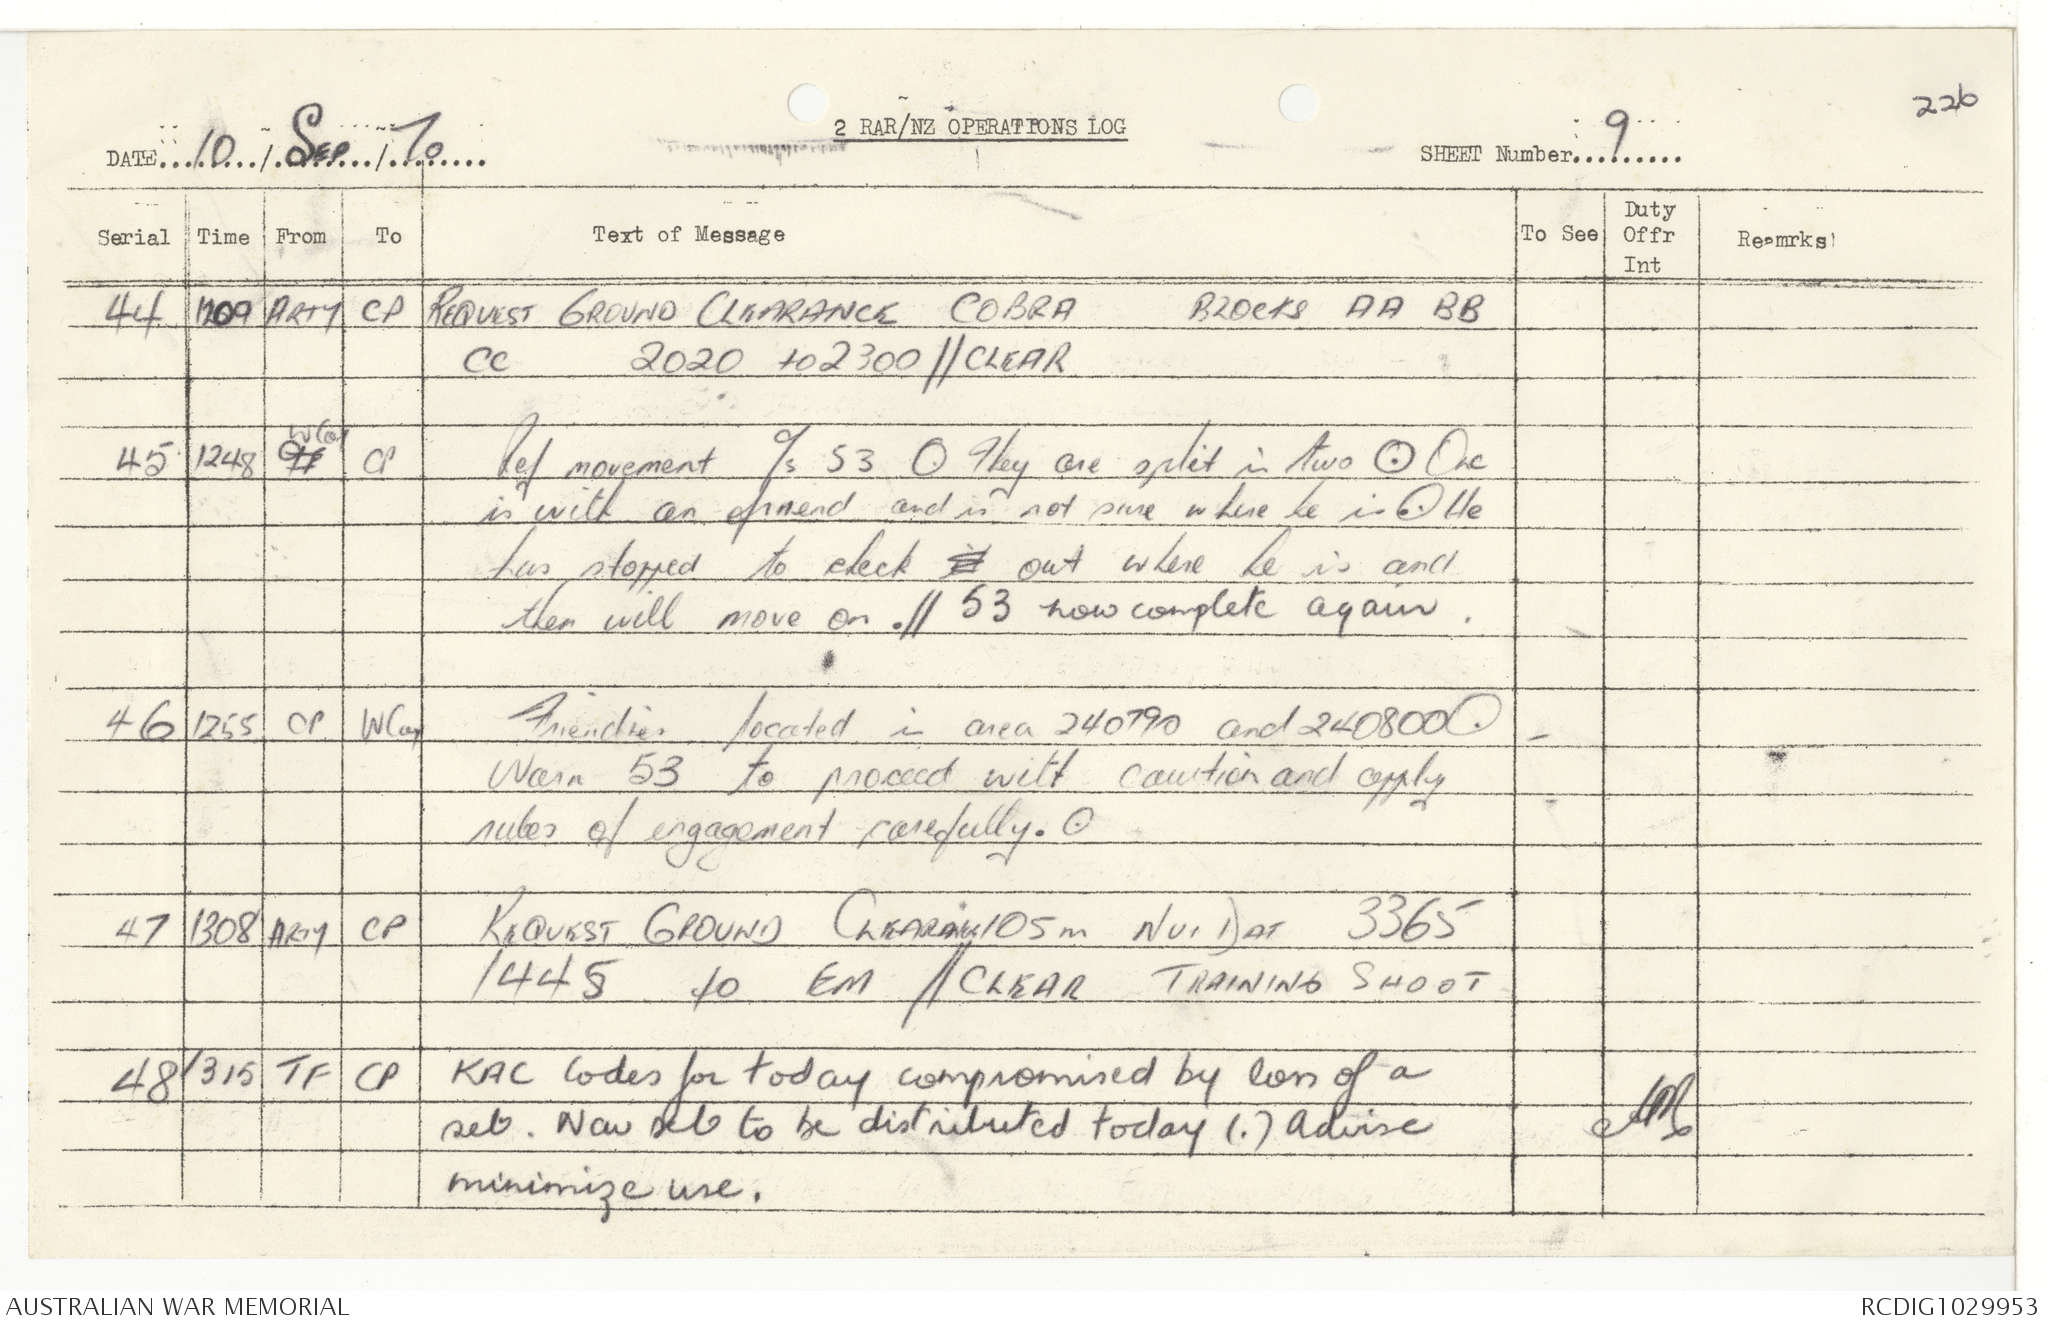 226
DATE 10 / Sep / 70
2 RAR/NZ OPERATIONS LOG
SHEET Number 9
Serial Time From To Text of Message To See Duty Offr Int Remrks
44 1209 ARTY CP REQUEST GROUND CLEARANCE COBRA BLOCKS AA BB
CC 2020 to 2300 // CLEAR
45 1248 WCoy CP Ref movement C/s 53 ⊙ They are split in two ⊙ One
is with an and is not sure where he is ⊙ He
has stopped to check out where he is and
then will move on. // 53 now complete again.
46 1255 CP WCoy Friendlies located in area 240790 and 240800 ⊙
Warn 53 to proceed with caution and apply
rules of engagement carefully. ⊙
47 1308 ARTY CP REQUEST GROUND CLEARANCE 105m NUI DAT 3365
1445 to EM // CLEAR TRAINING SHOOT
48 1315 TF CP KAC Codes for today compromised by loss of a
set. New set to be distributed today (.) Advise
minimize use.
AUSTRALIAN WAR MEMORIAL
RCDIG1029953